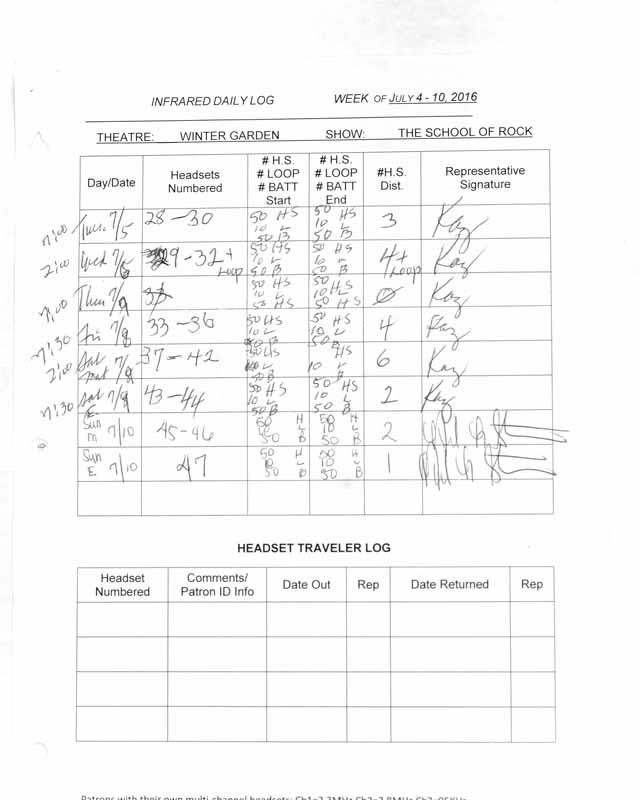 INFRARED DAILY LOG WEEK OF JULY 4 - 10, 2016
THEATRE: WINTER GARDEN SHOW: THE SCHOOL OF ROCK
Day/Date Headsets Numbered # H.S. # LOOP # BATT Start # H.S. # LOOP # BATT End #H.S. Dist. Representative Signature
7:00 Tues. 7/5 28-30 50 HS 10 L 50 B 50 HS 10 L 50 B 3 Kaz
2:00 Wed 7/6 29-32+ Loop 50 HS 10 L 50 B 50 HS 10 L 50 B 4+ Loop Kaz
7:00 Thu 50 HS 10 L 50 HS 50 HS 10 L 50 HS 0 Kaz
7:30 Fri 7/8 33-36 50 HS 10 L 50 B 50 HS 10 L 50 B 4 Kaz
2:00 Sat mat 7/9 37-42 50 HS 10 L 50 B HS 10 L B 6 Kaz
7:30 Sat E 7/9 43-44 50 HS 10 L 50 B 50 HS 10 L 50 B 2 Kaz
Sun m 7/10 45-46 50 H 10 L 50 B 50 H 10 L 50 B 2
Sun E. 7/10 47 50 H 10 L 50 B 50 H 10 L 50 B 1
HEADSET TRAVELER LOG
Headset Numbered Comments/ Patron ID Info Date Out Rep Date Returned Rep
Patrons with their own multi-channel headsets: Ch1=2.3MHz Ch2=2.8MHz